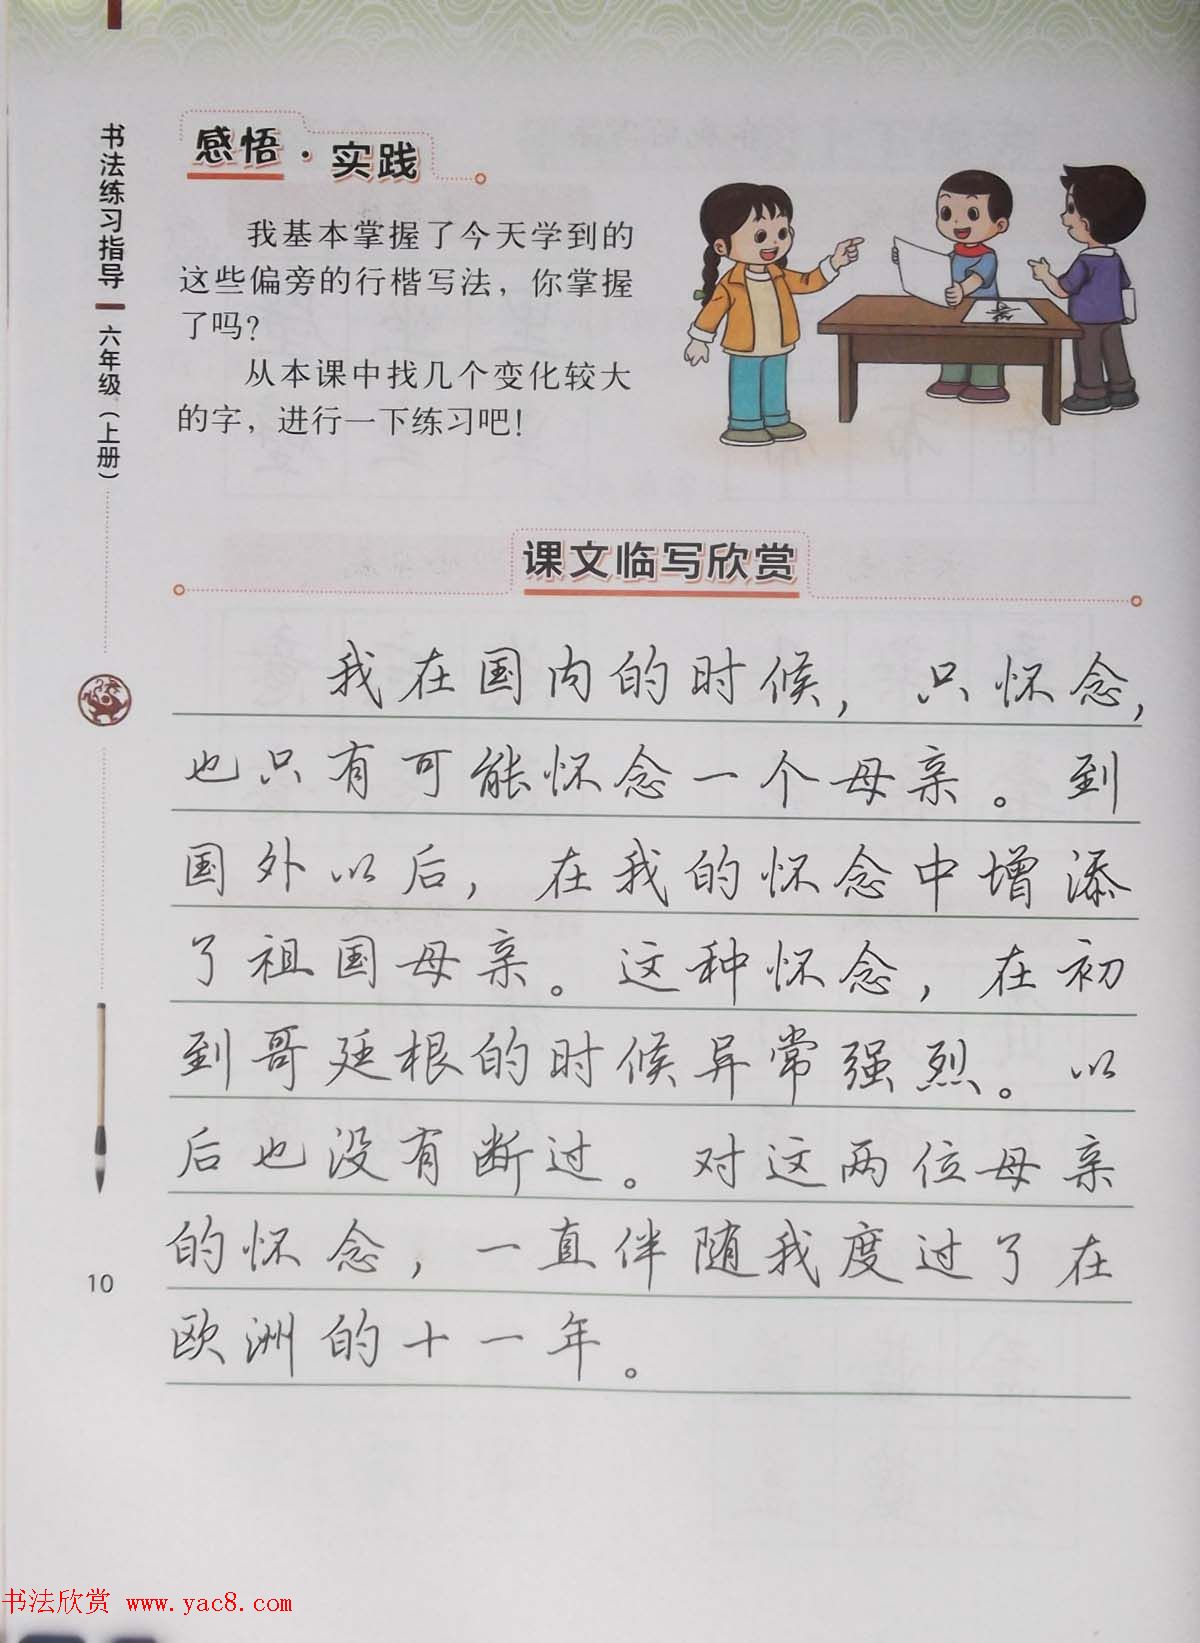 书法练习指导 六年级（上册）
感悟·实践
我基本掌握了今天学到的
这些偏旁的行楷写法，你掌握
了吗？
从本课中找几个变化较大
的字，进行一下练习吧！
课文临写欣赏
我在国内的时候，只怀念，
也只有可能怀念一个母亲。到
国外以后，在我的怀念中增添
了祖国母亲。这种怀念，在初
到哥廷根的时候异常强烈。以
后也没有断过。对这两位母亲
的怀念，一直伴随我度过了在
欧洲的十一年。
10
书法欣赏 www.yac8.com